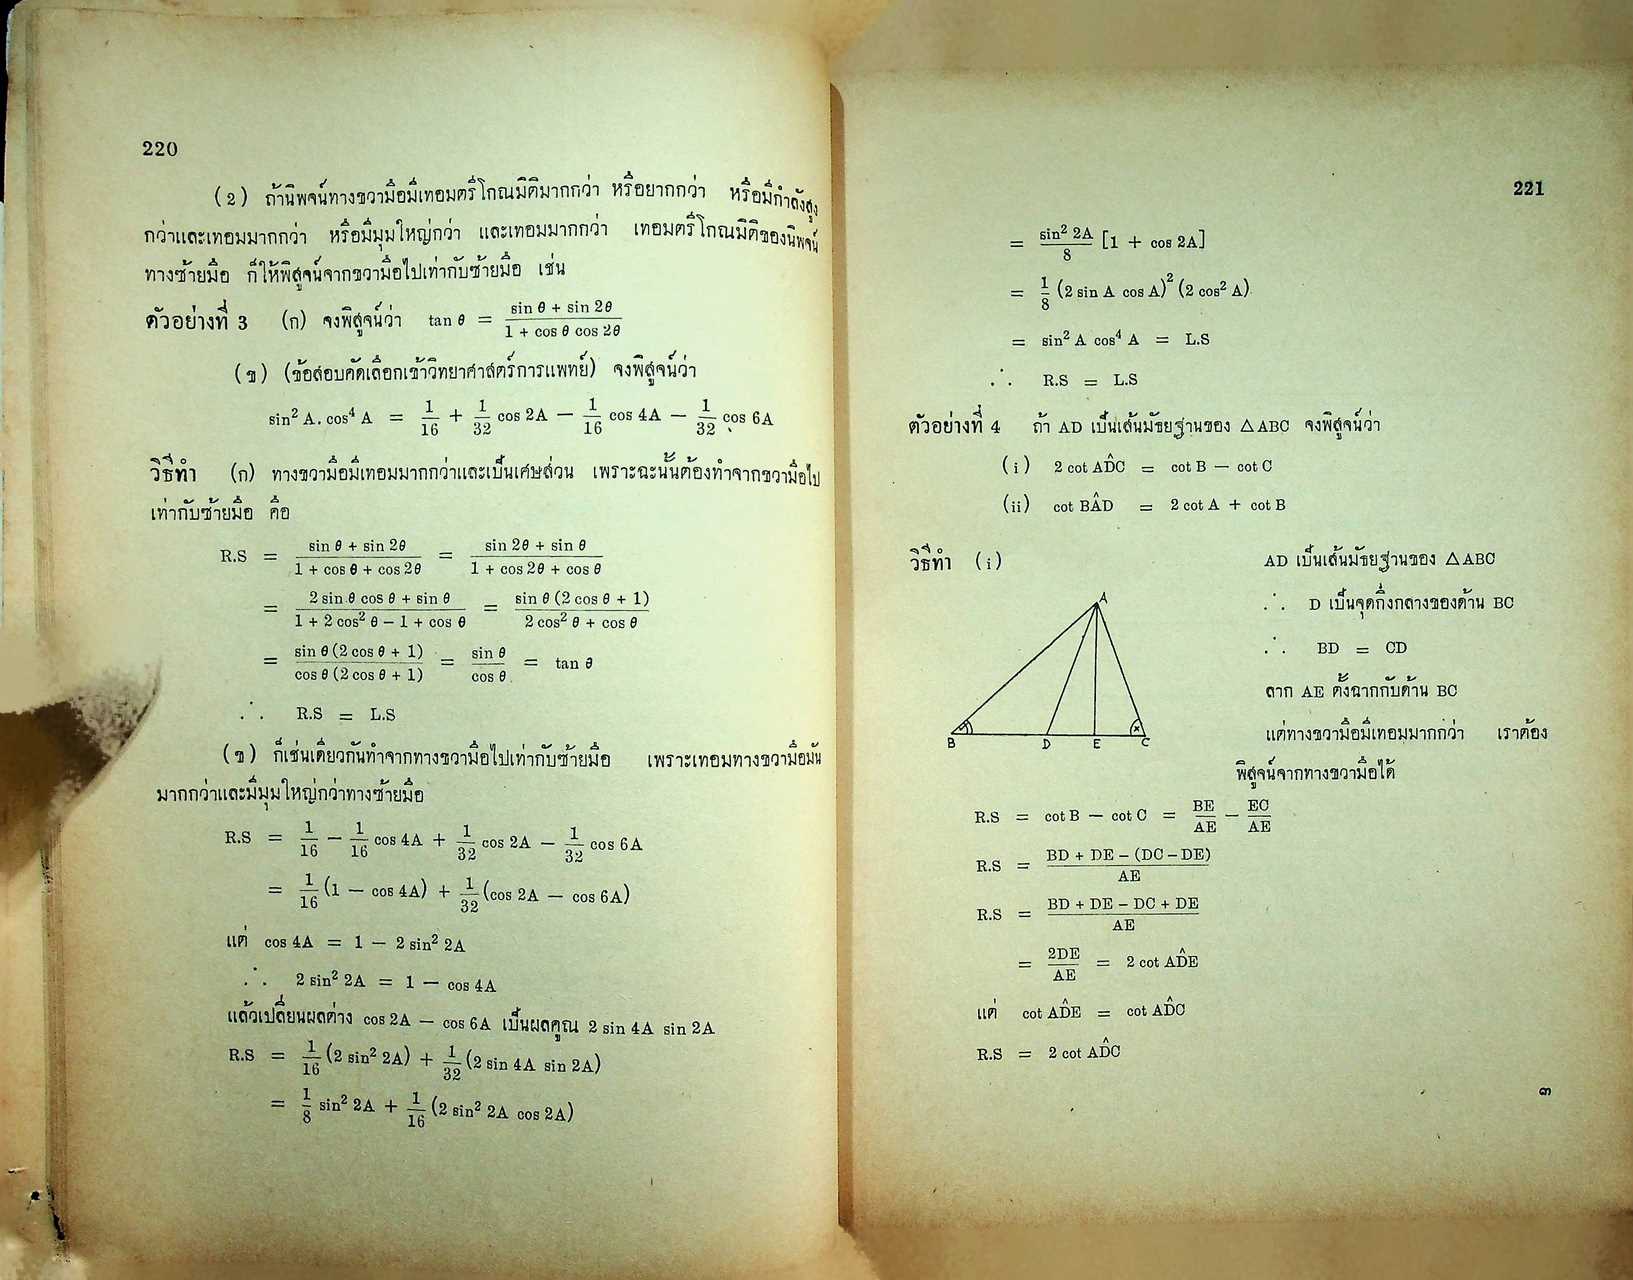 220
(2) ถ้านิพจน์ทางขวามือมีเทอมตรีโกณมิติมากกว่า หรือยากกว่า หรือมีกำลังสูง
กว่าและเทอมมากกว่า หรือมีมุมใหญ่กว่า และเทอมมากกว่า เทอมตรีโกณมิติของนิพจน์
ทางซ้ายมือ ก็ให้พิสูจน์จากขวามือไปเท่ากับซ้ายมือ เช่น
ตัวอย่างที่ 3 (ก) จงพิสูจน์ว่า tan θ = (sin θ + sin 2θ)/(1 + cos θ cos 2θ)
(ข) (ข้อสอบคัดเลือกเข้าวิทยาศาสตร์การแพทย์) จงพิสูจน์ว่า
sin² A. cos⁴ A = 1/16 + 1/32 cos 2A − 1/16 cos 4A − 1/32 cos 6A
วิธีทำ (ก) ทางขวามือมีเทอมมากกว่าและเป็นเศษส่วน เพราะฉะนั้นต้องทำจากขวามือไป
เท่ากับซ้ายมือ คือ
R.S = (sin θ + sin 2θ)/(1 + cos θ + cos 2θ) = (sin 2θ + sin θ)/(1 + cos 2θ + cos θ)
= (2 sin θ cos θ + sin θ)/(1 + 2 cos² θ − 1 + cos θ) = sin θ (2 cos θ + 1)/(2 cos² θ + cos θ)
= sin θ (2 cos θ + 1)/cos θ (2 cos θ + 1) = sin θ/cos θ = tan θ
∴ R.S = L.S
(ข) ก็เช่นเดียวกันทำจากทางขวามือไปเท่ากับซ้ายมือ เพราะเทอมทางขวามือมัน
มากกว่าและมีมุมใหญ่กว่าทางซ้ายมือ
R.S = 1/16 − 1/16 cos 4A + 1/32 cos 2A − 1/32 cos 6A
= 1/16 (1 − cos 4A) + 1/32 (cos 2A − cos 6A)
แต่ cos 4A = 1 − 2 sin² 2A
∴ 2 sin² 2A = 1 − cos 4A
แล้วเปลี่ยนผลต่าง cos 2A − cos 6A เป็นผลคูณ 2 sin 4A sin 2A
R.S = 1/16 (2 sin² 2A) + 1/32 (2 sin 4A sin 2A)
= 1/8 sin² 2A + 1/16 (2 sin² 2A cos 2A)
221
= sin² 2A/8 [1 + cos 2A]
= 1/8 (2 sin A cos A)² (2 cos² A)
= sin² A cos⁴ A = L.S
∴ R.S = L.S
ตัวอย่างที่ 4 ถ้า AD เป็นเส้นมัธยฐานของ △ABC จงพิสูจน์ว่า
(i) 2 cot AD̂C = cot B − cot C
(ii) cot BÂD = 2 cot A + cot B
วิธีทำ (i) AD เป็นเส้นมัธยฐานของ △ABC
∴ D เป็นจุดกึ่งกลางของด้าน BC
∴ BD = CD
ลาก AE ตั้งฉากกับด้าน BC
แต่ทางขวามือมีเทอมมากกว่า เราต้อง
พิสูจน์จากทางขวามือได้
A
B D E C
x
R.S = cot B − cot C = BE/AE − EC/AE
R.S = (BD + DE − (DC − DE))/AE
R.S = (BD + DE − DC + DE)/AE
= 2DE/AE = 2 cot AD̂E
แต่ cot AD̂E = cot AD̂C
R.S = 2 cot AD̂C
๓